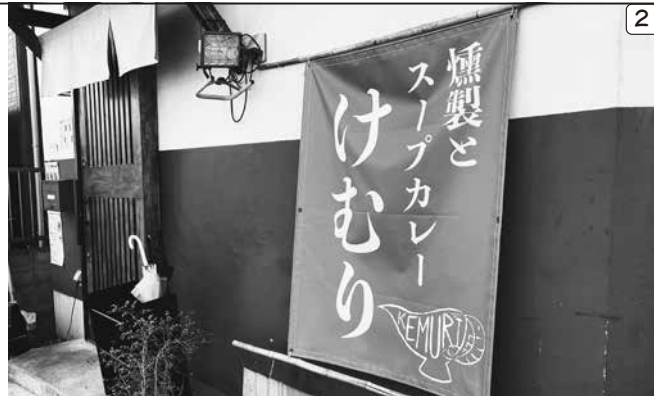 2
燻製と
スープカレー
けむり
KEMURI